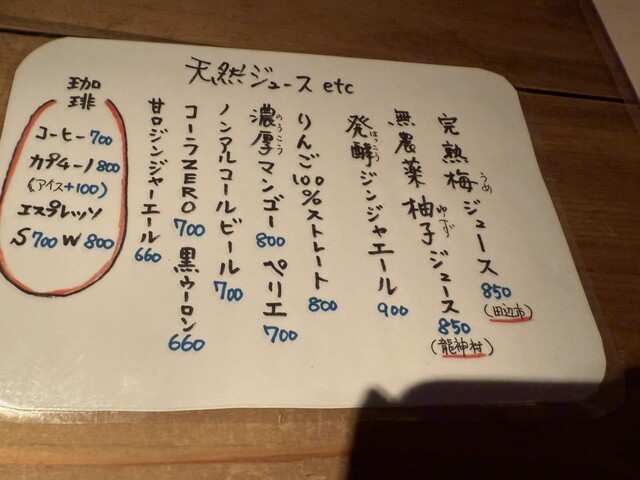 天然ジュース etc
完熟梅ジュース 850
うめ
(田辺市)
無農薬 柚子ジュース 850
ゆず
(龍神村)
発酵ジンジャエール 900
はっこう
りんご100%ストレート 800
濃厚マンゴー 800 ペリエ 700
のうこう
ノンアルコールビール 700
コーラZERO 700 黒ウーロン 660
甘口ジンジャーエール 660
珈琲
コーヒー 700
カプチーノ 800
(アイス+100)
エスプレッソ
S 700 W 800